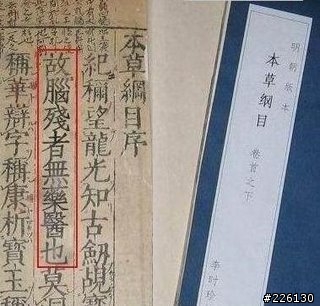 本草綱目序
紀稱望龍光知古劍覘寶
故腦殘者無藥醫也莫
稱華辯字稱康析寶玉稱
明朝版本
本草纲目
卷首之下
李时珍
#226130